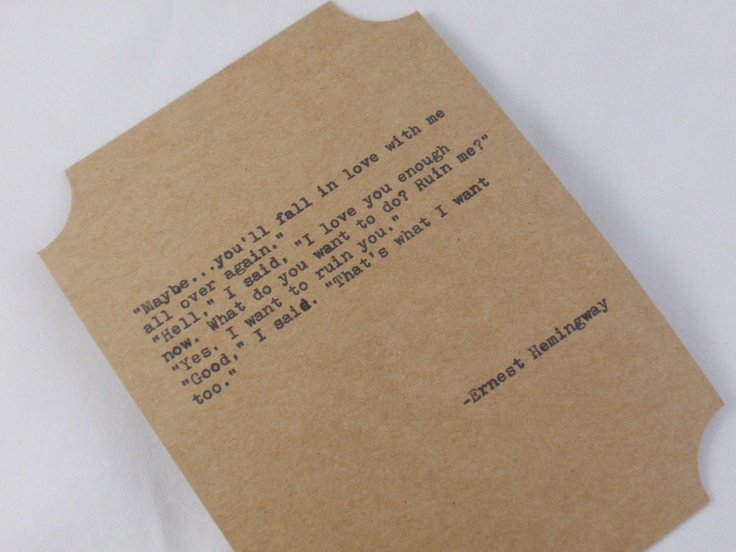 "Maybe...you'll fall in love with me
all over again."
"Hell," I said, "I love you enough
now. What do you want to do? Ruin me?"
"Yes. I want to ruin you."
"Good," I said. "That's what I want
too."
-Ernest Hemingway